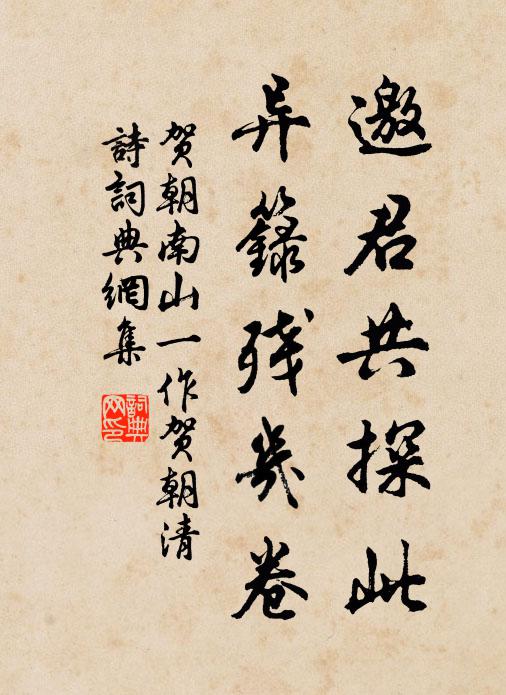 邀君共探此
异籙残几卷
贺朝南山一作贺朝清
詩词典網集
詞典网印